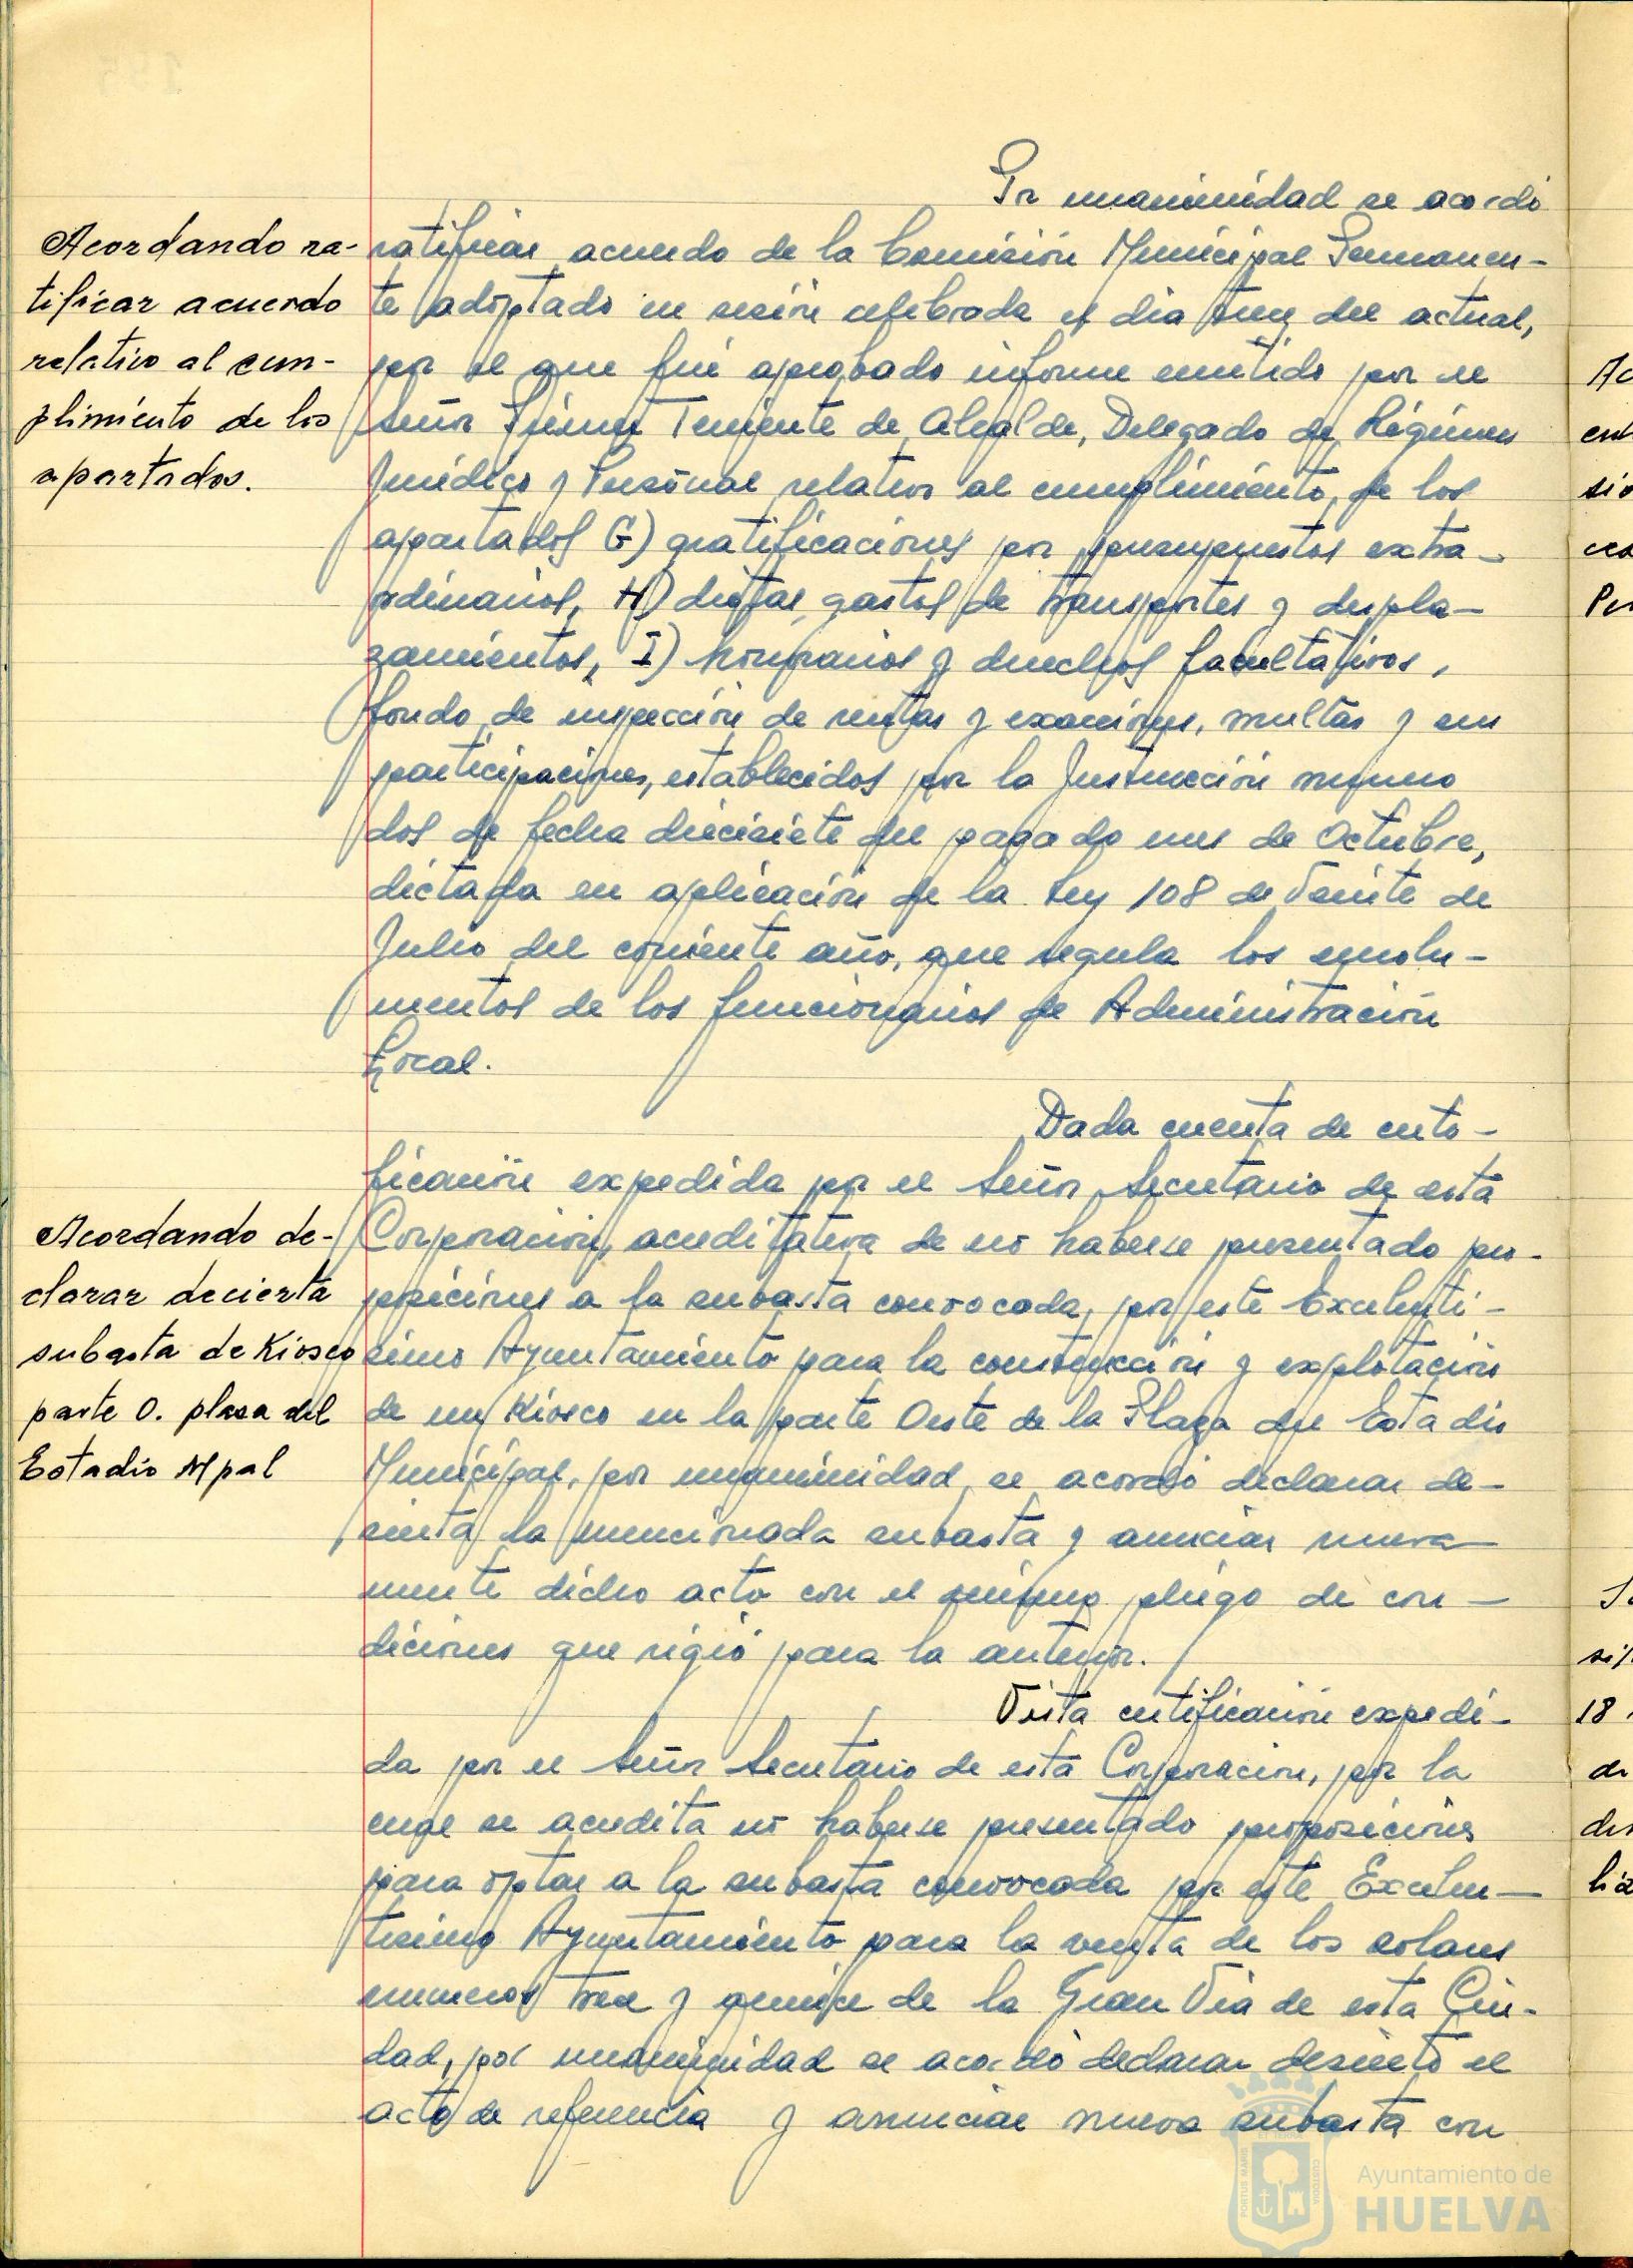 Por unanimidad se acordó
Acordando ra-
tificar acuerdo
relativo al cum-
plimiento de los
apartados.
ratificar acuerdo de la Comisión Municipal Permanen-
te adoptado en sesión celebrada el dia del actual,
por el que fué aprobado informe emitido por el
Señor Primer Teniente de Alcalde, Delegado de Régimen
Jurídico y Personal relativo al cumplimiento, de los
apartados G) gratificaciones por presupuestos extra-
ordinarios, H) dietas, gastos de transportes y despla-
zamientos, I) honorarios y derechos facultativos,
fondo de inspección de rentas y exacciones, multas y sus
participaciones, establecidos por la Instrucción numero
dos de fecha diecisiete del pasado mes de Octubre,
dictada en aplicación de la Ley 108 de Veinte de
Julio del corriente año, que regula los emolu-
mentos de los funcionarios de Administración
Local.
Dada cuenta de certi-
ficación expedida por el Señor Secretario de esta
Acordando de-
clarar decierta
subasta de Kiosco
parte O. plaza del
Estadio Mpal
Corporación, acreditativa de no haberse presentado pro-
posiciones a la subasta convocada, por este Excelentí-
simo Ayuntamiento para la construcción y explotación
de un Kiosco en la parte Oeste de la Plaza del Estadio
Municipal, por unanimidad, se acordó declarar de-
sierta la mencionada subasta y anunciar nueva-
mente dicho acto con el mismo pliego de con-
diciones que rigió para la anterior.
Vista certificación expedi-
da por el Señor Secretario de esta Corporación, por la
cual se acredita no haberse presentado proposiciones
para optar a la subasta convocada por este Excelen-
tisimo Ayuntamiento para la venta de los solares
numeros trece y quince de la Gran Via de esta Ciu-
dad, por unanimidad se acordó declarar desierto el
acto de referencia y anunciar nueva subasta con
Ayuntamiento de
HUELVA